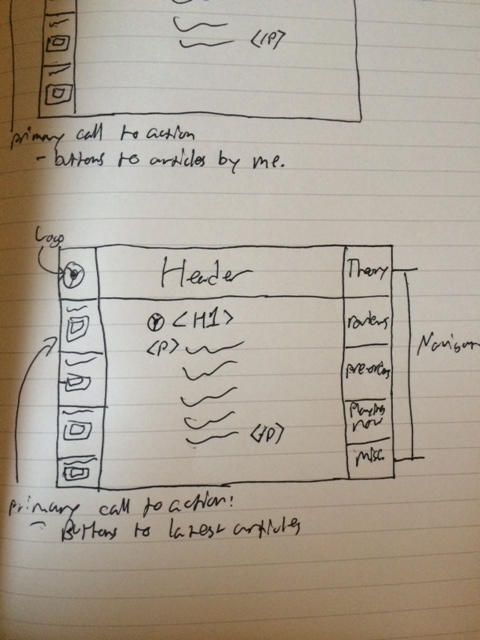 </P>
primary call to action
- buttons to articles by me.
Logo
Header
Theory
<H1>
reviews
<P>
previews
Playing
now
</P>
misc.
primary call to action:
- Buttons to latest articles